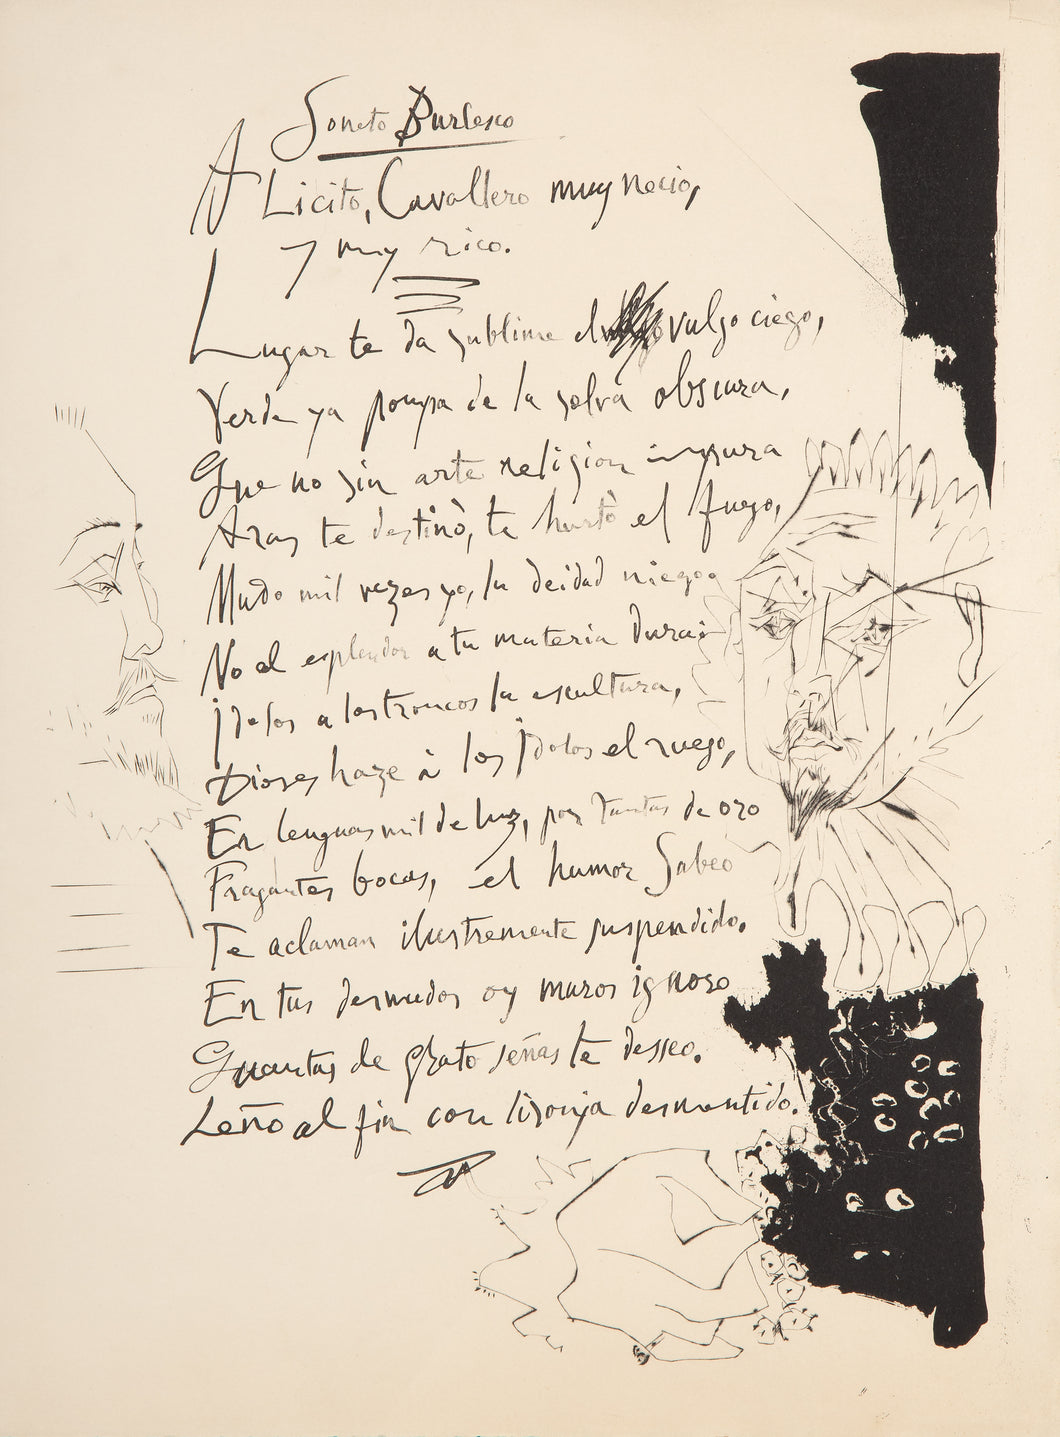 Soneto Burlesco
A Licito, Cavallero muy necio,
y muy rico.
Lugar te da sublime el vulgo ciego,
Verde ya pompa de la selva obscura,
Que no sin arte religion impura
Aras te destinò, te hurtò el fuego,
Mudo mil vezes yo, la deidad niego
No el esplendor a tu materia dura:
Idolos a los troncos la escultura,
Dioses haze à los Idolos el ruego,
En lenguas mil de luz, por tantas de oro
Fragantes bocas, el humor Sabeo
Te aclaman ilustremente suspendido.
En tus desnudos oy muros ignoro
Quantas de grato señas te desseo.
Leño al fin con lisonja desmentido.